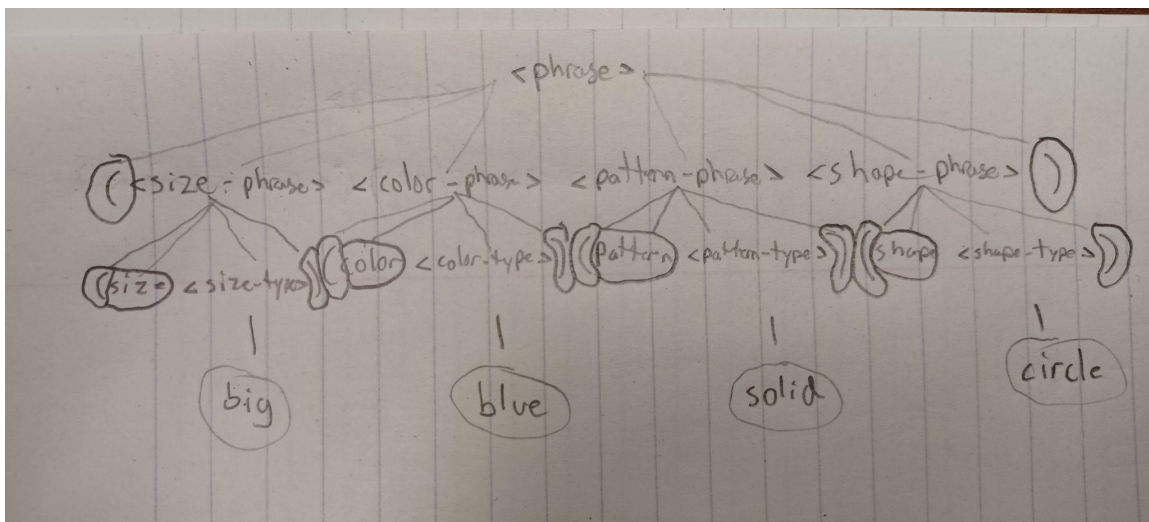 <phrase>
( <size-phrase> <color-phrase> <pattern-phrase> <shape-phrase> )
( size <size-type> ) ( color <color-type> ) ( pattern <pattern-type> ) ( shape <shape-type> )
big blue solid circle